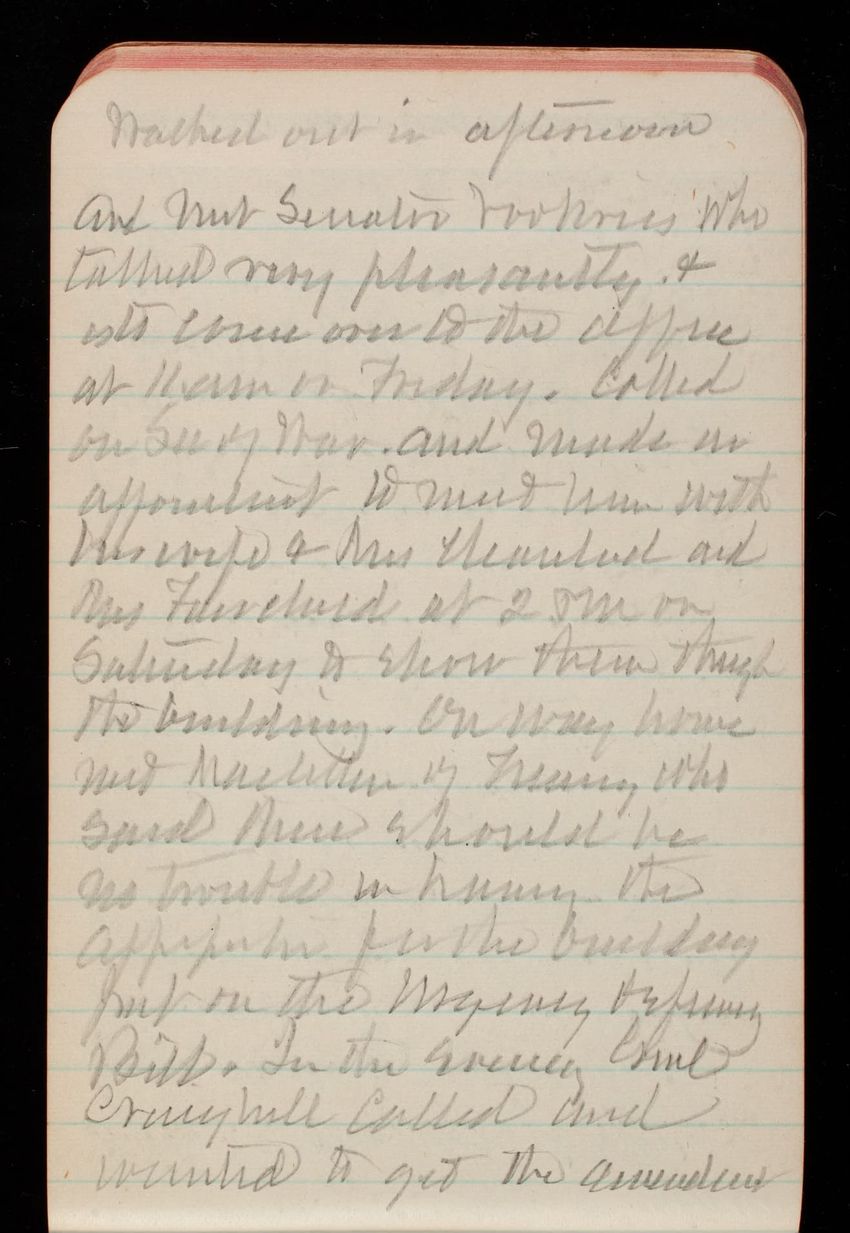 Walked out in afternoon
and met Senator Voohries who
talked very pleasantly &
is to come over to the office
at 11 am on Friday. Called
on Sec of War. and made an
appointmt to meet him with
his wife & Mrs and
Mrs Fairchild at 2 PM on
Saturday to show them though
the building. On way home
met of Treasury who
said there should be
no trouble in having the
for the building
put on the Urgency
Bill. In the Evening Col
Craighill called and
wanted to get the amendmt